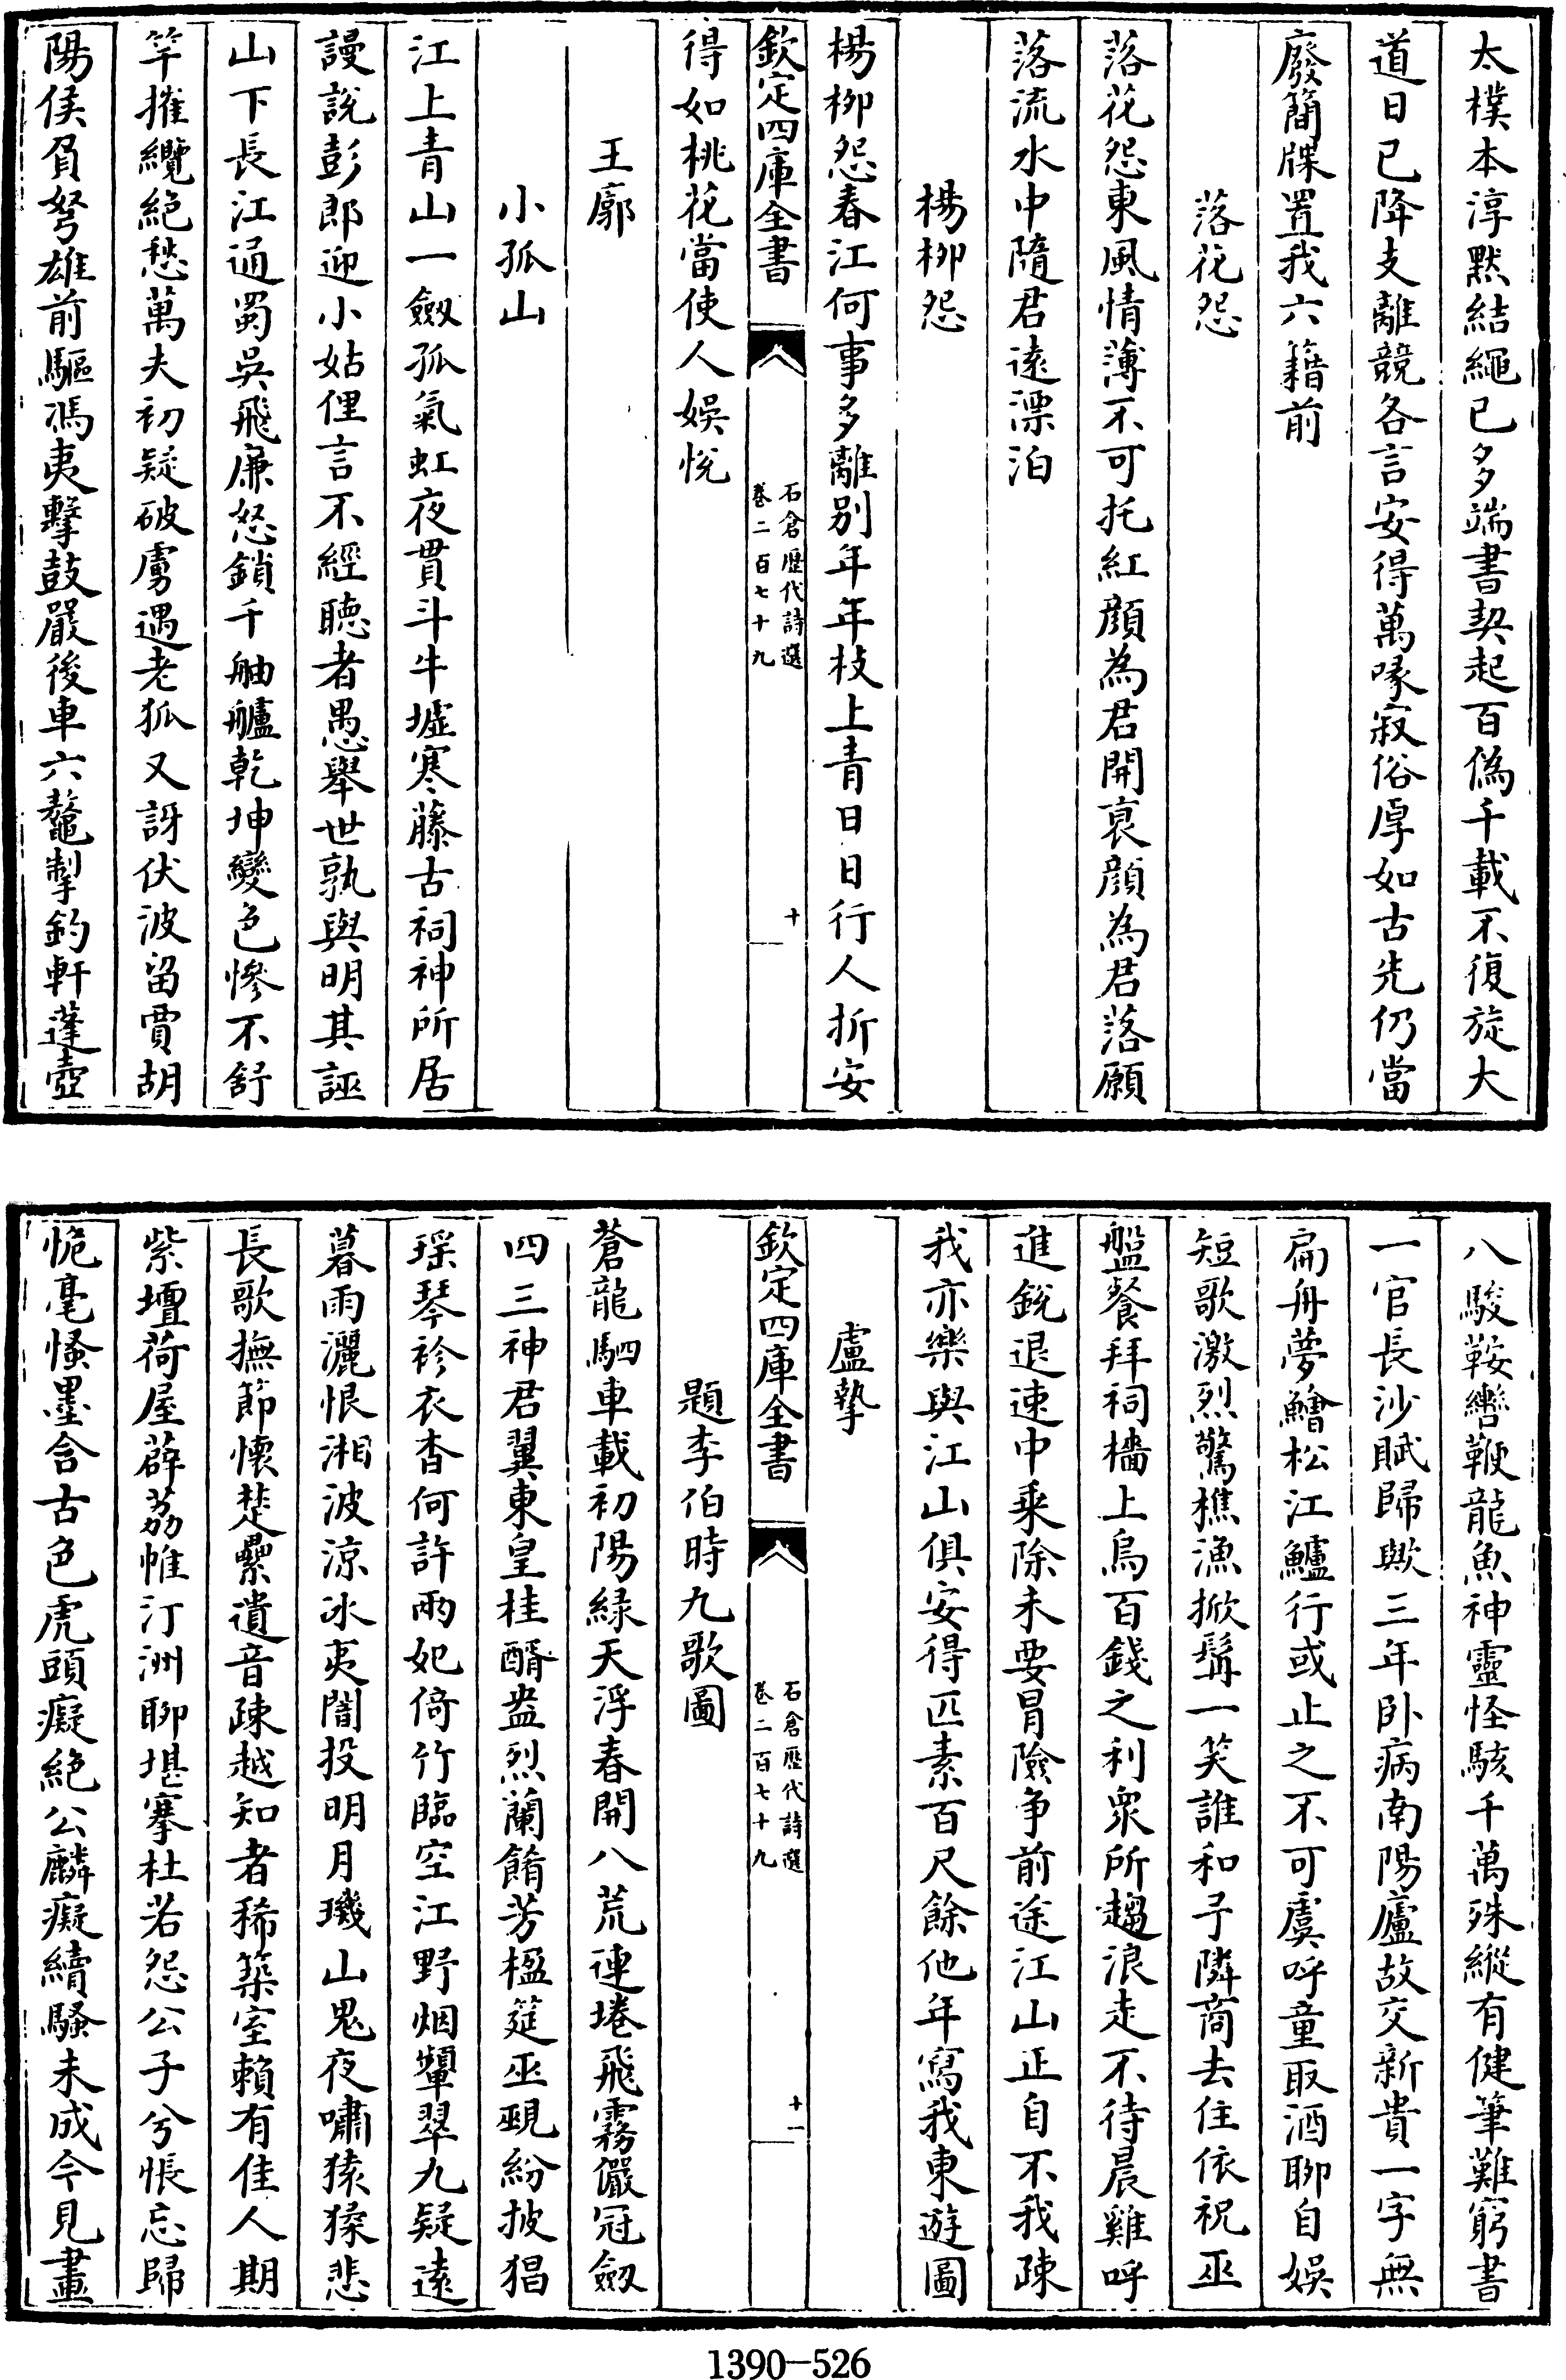 太樸本淳默結繩已多端書契起百偽千載不復旋大
道日已降支離競各言安得萬喙寂俗厚如古先仍當
廢簡牒置我六籍前
落花怨
落花怨東風情薄不可托紅顔為君開衰顔為君落願
落流水中隨君遠漂泊
楊栁怨
楊栁怨春江何事多離别年年枝上青日日行人折安
欽定四庫全書
石倉歴代詩選
卷二百七十九
十
得如桃花當使人娛悅
王廓
小孤山
江上青山一劔孤氣虹夜貫斗牛墟寒藤古祠神所居
謾說彭郎迎小姑俚言不經聴者愚舉世孰與明其誣
山下長江通蜀吳飛亷怒鎖千舳艫乾坤變色慘不舒
竿摧纜絶愁萬夫初疑破虜遇老狐又訝伏波留賈胡
陽侯負弩雄前驅馮夷擊鼓嚴後車六鼇掣釣軒蓬壺
八駿鞍轡鞭龍魚神靈怪駭千萬殊縱有健筆難窮書
一官長沙賦歸歟三年卧病南陽廬故交新貴一字無
扁舟夢鱠松江鱸行或止之不可虞呼童取酒聊自娛
短歌激烈驚樵漁掀髯一笑誰和予隣商去住依祝巫
盤餐拜祠檣上烏百錢之利衆所趨浪走不待晨雞呼
進銳退速中乘除未要冒險争前途江山正自不我疎
我亦樂與江山俱安得匹素百尺餘他年寫我東遊圖
盧摯
欽定四庫全書
石倉歴代詩選
卷二百七十九
十一
題李伯時九歌圖
蒼龍駟車載初陽緑天浮春開八荒連埢飛霧儼冠劔
四三神君翼東皇桂醑盎烈蘭餚芳楹筵巫覡紛披猖
瑶琴袗衣杳何許兩妃倚竹臨空江野烟顰翠九疑遠
暮雨灑恨湘波涼冰夷闇投明月璣山鬼夜嘯猿猱悲
長歌撫節懷楚纍遺音疎越知者稀築室賴有佳人期
紫壇荷屋薜荔帷汀洲聊堪搴杜若怨公子兮悵忘歸
恑亳慅墨含古色虎頭癡絶公麟癡續騷未成今見畫
1390-526